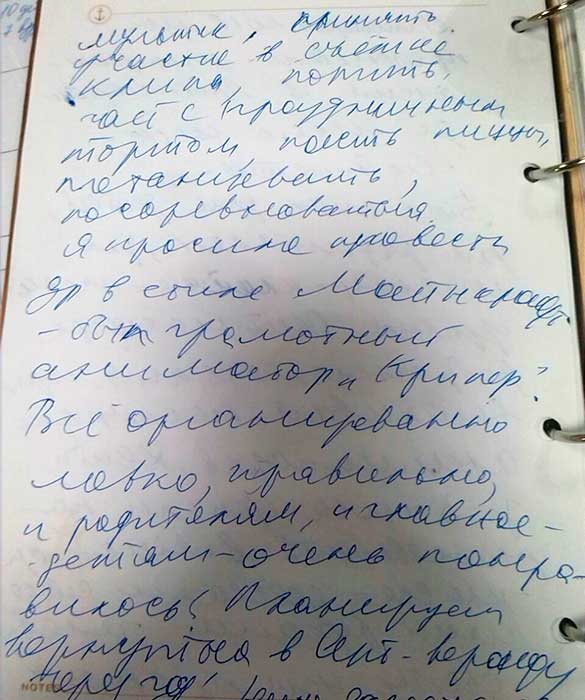 мультик, принять
участие в съёмке
клипа, попить
чай с праздничным
тортом, поесть пиццы,
потанцевать,
посоревноваться.
Я просила провести
др в стиле Майнкрафт
- был грамотный
аниматор и Крипер!
Всё организованно
ловко, правильно,
и родителям, и главное -
- детям - очень понра-
вилось! Планируем
вернуться в Арт-веранду
через год!
NOTE